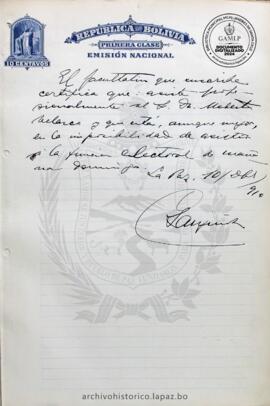 REPÚBLICA DE BOLIVIA
PRIMERA CLASE
EMISIÓN NACIONAL
10 CENTAVOS
GAMLP
DOCUMENTO
DIGITALIZADO
2024
El facultativo que suscribe
certifica que: asiste profe-
sionalmente al S. Dr.
y que está, aunque mejor,
en la imposibilidad de asistir
a la función electoral de maña-
na Domingo. La Paz, 10/
910
archivohistorico.lapaz.bo